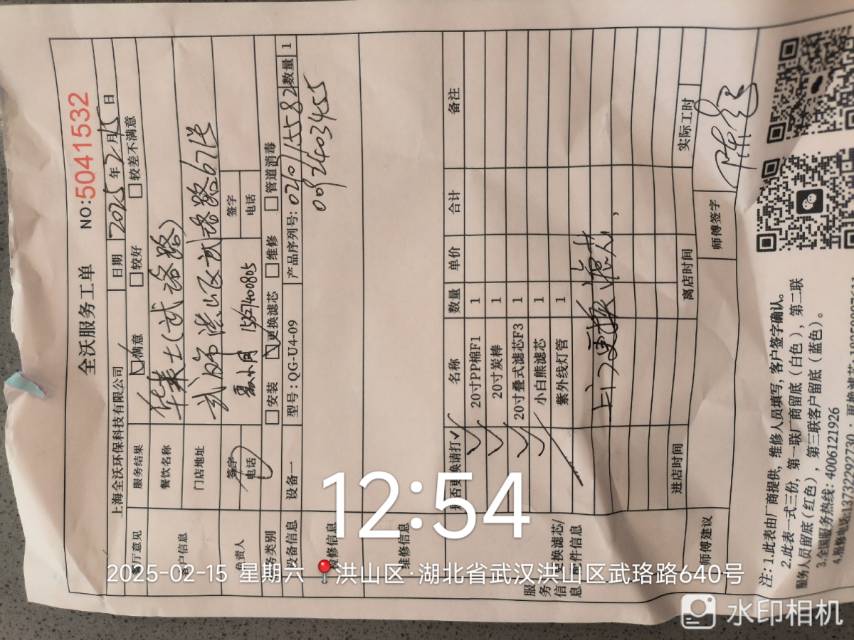 全沃服务工单
NO:5041532
上海全沃环保科技有限公司 日期 2025年2月15日
服务结果 满意 较好 较差不满意
餐饮名称 华莱士(武珞路)
门店地址
签字
电话 签字
电话
安装 更换滤芯 维修 管道消毒
设备一 型号:QG-U4-09 产品序列号: 数量 1
0092403455
名称 数量 单价 合计 备注
20寸PP棉F1 1
20寸炭棒 1
20寸叠式滤芯F3 1
小白熊滤芯 1
紫外线灯管 1
进店时间 离店时间 实际工时
师傅建议 师傅签字
注:1.此表由厂商提供,维修人员填写,客户签字确认。
2.此表一式三份,第一联厂商留底(白色),第二联
服务人员留底(红色),第三联客户留底(蓝色)。
3.全国服务热线:4006121926
12:54
2025-02-15 星期六 洪山区·湖北省武汉洪山区武珞路640号
水印相机